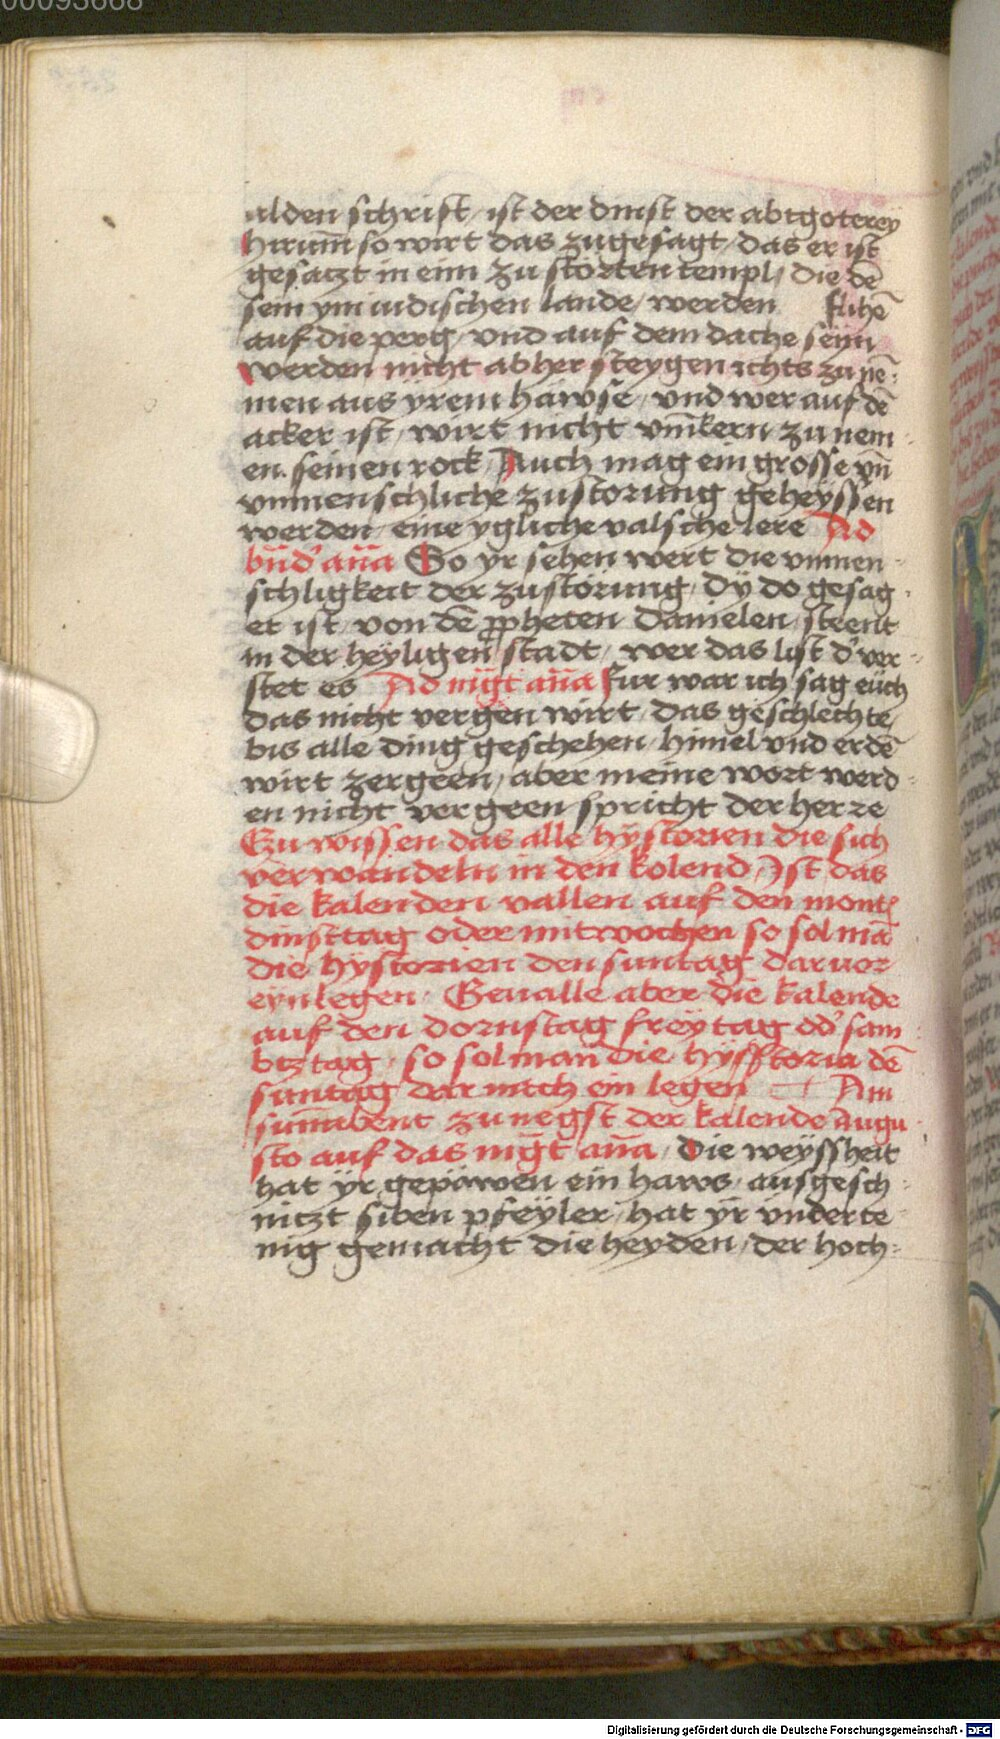 00093668
alden schrift / ist der dinst der abtgoterey
Hirum̄ so wirt das zugesagt / das er ist
gesatzt in eim zustorten templ / die dē
sein ym iudischen lande / werden flihē
auf die perg / vnd auf dem dache sein
werden nicht abher steygen ichts zu ne-
men aus yrem hawse / vnd wer auf dē
acker ist / wirt nicht vm̄kern / zu nem-
en seinen rock / Auch mag ein grosse vn̄
vnmenschliche zustorung geheyssen
werden / eine ygliche valsche lere Ad
bn̄d' an̄a So yr sehen wert die vnmen-
schligkeit der zustorung / dy do gesag-
et ist / von dē ppheten Danielen / steent
in der heyligen stadt / wer das list d' ver-
stet es Ad mḡt an̄a fur war ich sag euch
das nicht vergen wirt / das geschlechte /
bis alle ding geschehen / himel vnd erdē
wirt zergeen / aber meine wort werd-
en nicht vergeen / spricht der herre
Zu wissen das alle hystorien die sich
verwandeln in den kolend / Ist das
die kalenden vallen auf den mont
dinsttag oder mitwochen so sol mā
die hystorien den suntag daruor
eynlegen / Geualle aber die kalende
auf den dornstag freytag od' sam-
btztag / so sol man die hysstoria dē
suntag dar nach ein legen Am
sun̄abent zu negst der kalende augu-
sto auf das mḡt an̄a / Die weyssheit
hat yr gepawen ein haws / ausgesch-
nitzt siben pfeyler / hat yr vnderte
nig gemacht die heyden / der hoch-
Digitalisierung gefördert durch die Deutsche Forschungsgemeinschaft - DFG